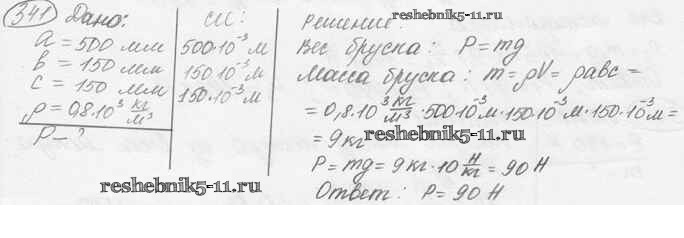 341 Дано:
a = 500 мм
b = 150 мм
c = 150 мм
ρ = 0,8·10³ кг/м³
P – ?
СИ:
500·10⁻³ м
150·10⁻³ м
150·10⁻³ м
reshebnik5-11.ru
Решение:
Вес бруска: P = mg
Масса бруска: m = ρV = ρabc =
= 0,8·10³ кг/м³ · 500·10⁻³ м · 150·10⁻³ м · 150·10⁻³ м =
= 9 кг
reshebnik5-11.ru
P = mg = 9 кг · 10 Н/кг = 90 Н
reshebnik5-11.ru
Ответ: P = 90 Н